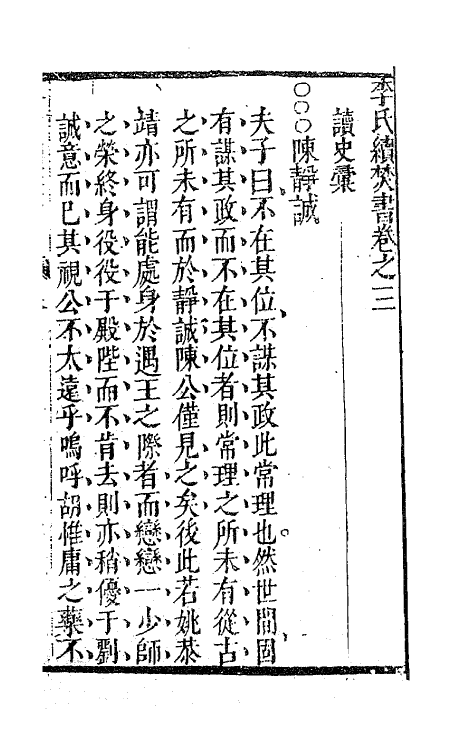 李氏續焚書卷之三
讀史彙
○○○陳靜誠
夫子曰不在其位不謀其政此常理也。然世間固
有謀其政而不在其位者則常理之所未有從古
之所未有而於靜誠陳公僅見之矣後此若姚恭
靖亦可謂能處身於遇王之際者而戀戀一少師
之榮終身役役于殿陛而不肯去則亦稍優于劉
誠意而已其視公不太遠乎嗚呼胡惟庸之藥不